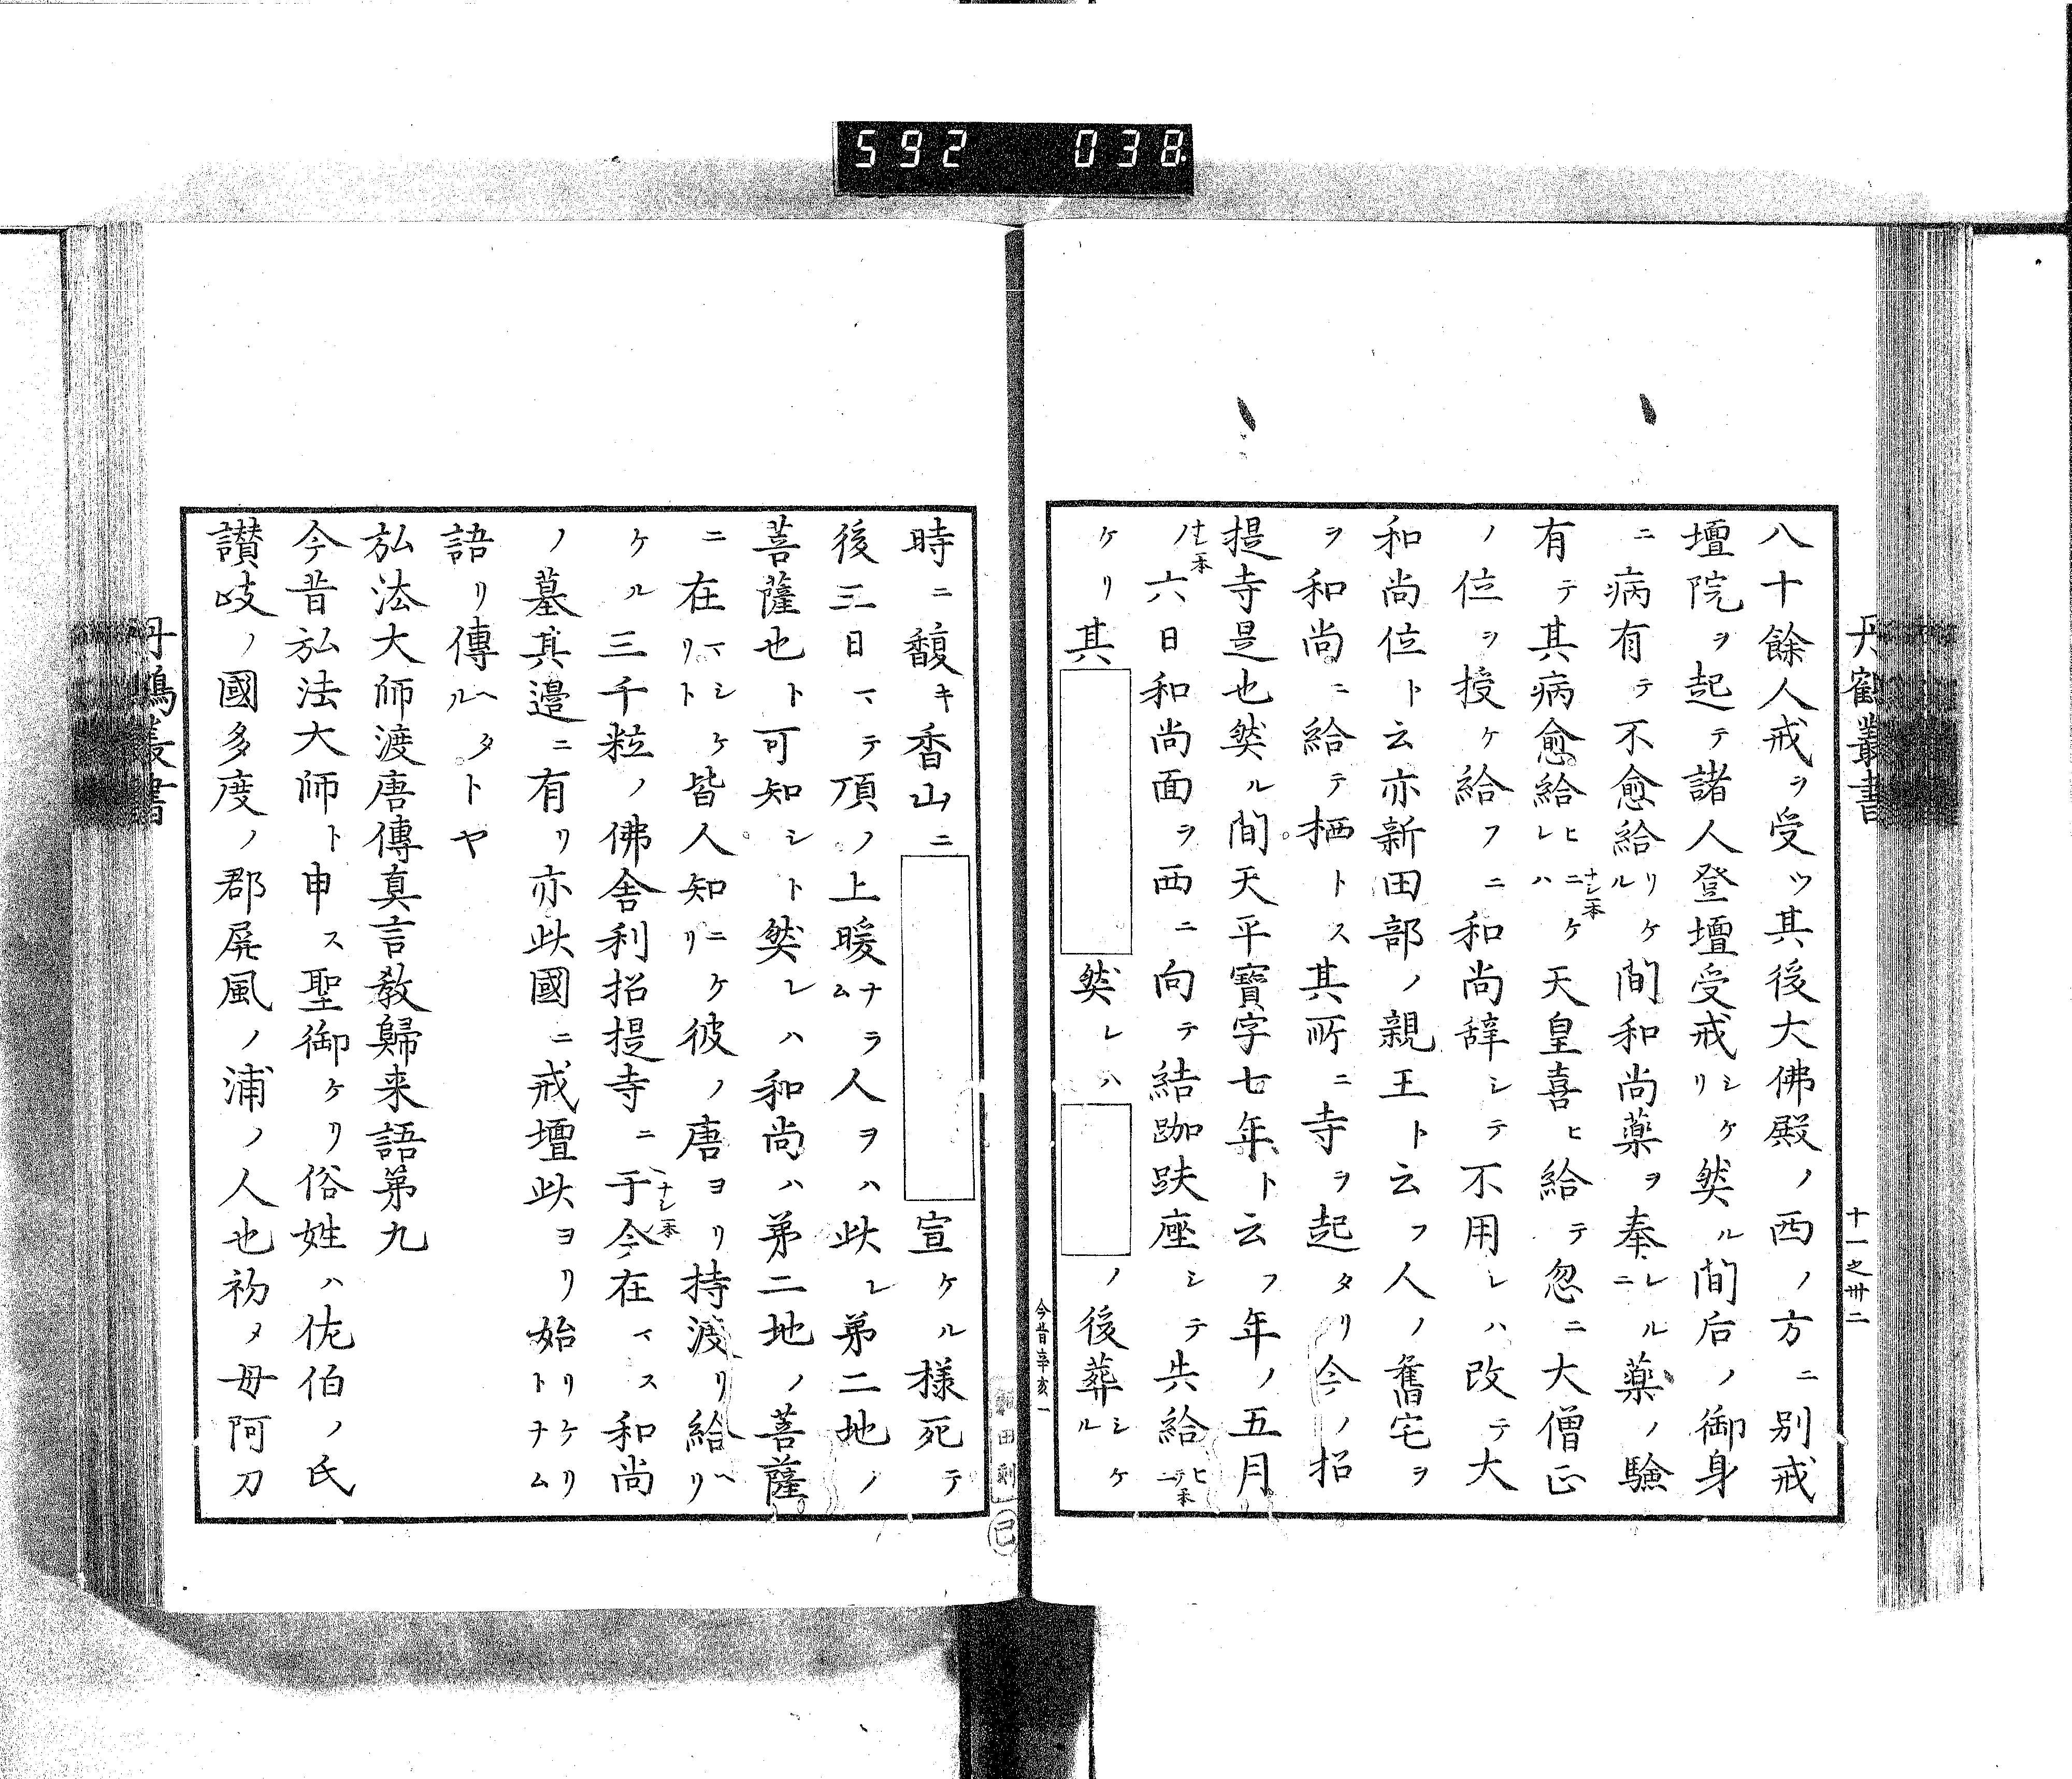 592 038
丹鶴叢書
十一之卅二
八十餘人戒ヲ受ツ其後大佛殿ノ西ノ方ニ別戒
壇院ヲ起テ諸人登壇受戒シケリ然ル間后ノ御身
ニ病有テ不愈給リケル間和尚藥ヲ奉レルニ藥ノ驗
有テ其病愈給ヒニケレハナシ一本天皇喜ヒ給テ忽ニ大僧正
ノ位ヲ授ケ給フニ和尚辞シテ不用レハ改テ大
和尚位ト云亦新田部ノ親王ト云フ人ノ舊宅ヲ
ヲ和尚ニ給テ栖トス其所ニ寺ヲ起タリ今ノ招
提寺是也然ル間天平寶字七年ト云フ年ノ五月
ノ六日和尚面ヲ西ニ向テ結跏趺座シテ失給ヒニ
ケリ其 然レハ ノ後葬シケル
今昔辛亥一
時ニ馥キ香山ニ 宣ケル樣死テ
後三日マテ頂ノ上暖ナラム人ヲハ此レ第二地ノ
菩薩也ト可知シト然レハ和尚ハ第二地ノ菩薩
ニ在マシケリト皆人知ニケリ彼ノ唐ヨリ持渡リ給ヘリ
ケル三千粒ノ佛舎利招提寺ニ于今ナシ一本在マス和尚
ノ墓其邉ニ有リ亦此國ニ戒壇此ヨリ始リケリトナム
語リ傳ヘタルトヤ
弘法大師渡唐傳真言教歸来語第九
今昔弘法大師ト申ス聖御ケリ俗姓ハ佐伯ノ氏
讃岐ノ國多度ノ郡屏風ノ浦ノ人也初メ母阿刀
丹鶴叢書